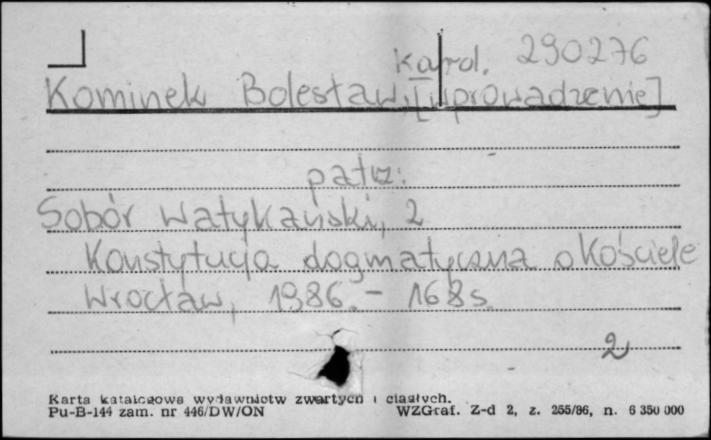 Kard. 290276
Kominek Bolesław, [wprowadzenie]
patrz:
Sobór Watykański, 2
Konstytucja dogmatyczna o Kościele
Wrocław, 1986. - 168 s.
2
Karta katalogowa wydawnictw zwartych i ciągłych.
Pu-B-144 zam. nr 446/DW/ON WZGraf. Z-d 2, z. 255/86, n. 6 350 000